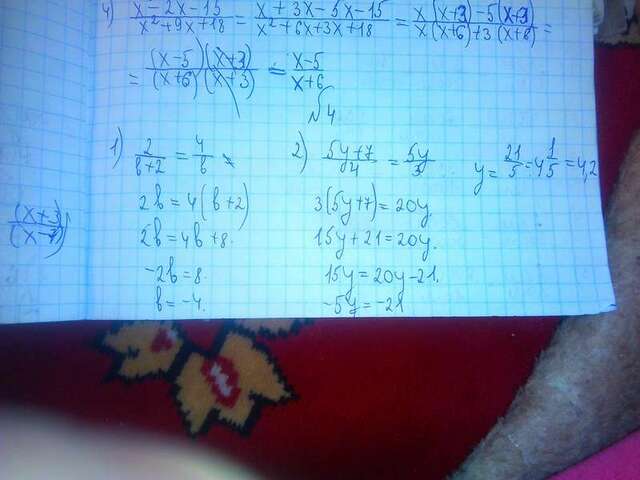 4) x - 2x - 15 / x² + 9x + 18 = x + 3x - 5x - 15 / x² + 6x + 3x + 18 = x(x+3) - 5(x+3) / x(x+6) + 3(x+6) =
= (x-5)(x+3) / (x+6)(x+3) = x-5 / x+6
№4
1) 2 / b+2 = 4 / b
2b = 4(b+2)
2b = 4b + 8.
-2b = 8.
b = -4.
2) 5y+7 / 4 = 5y / 3
3(5y+7) = 20y.
15y + 21 = 20y.
15y = 20y - 21.
-5y = -21
y = 21/5 = 4 1/5 = 4,2
(x+3)